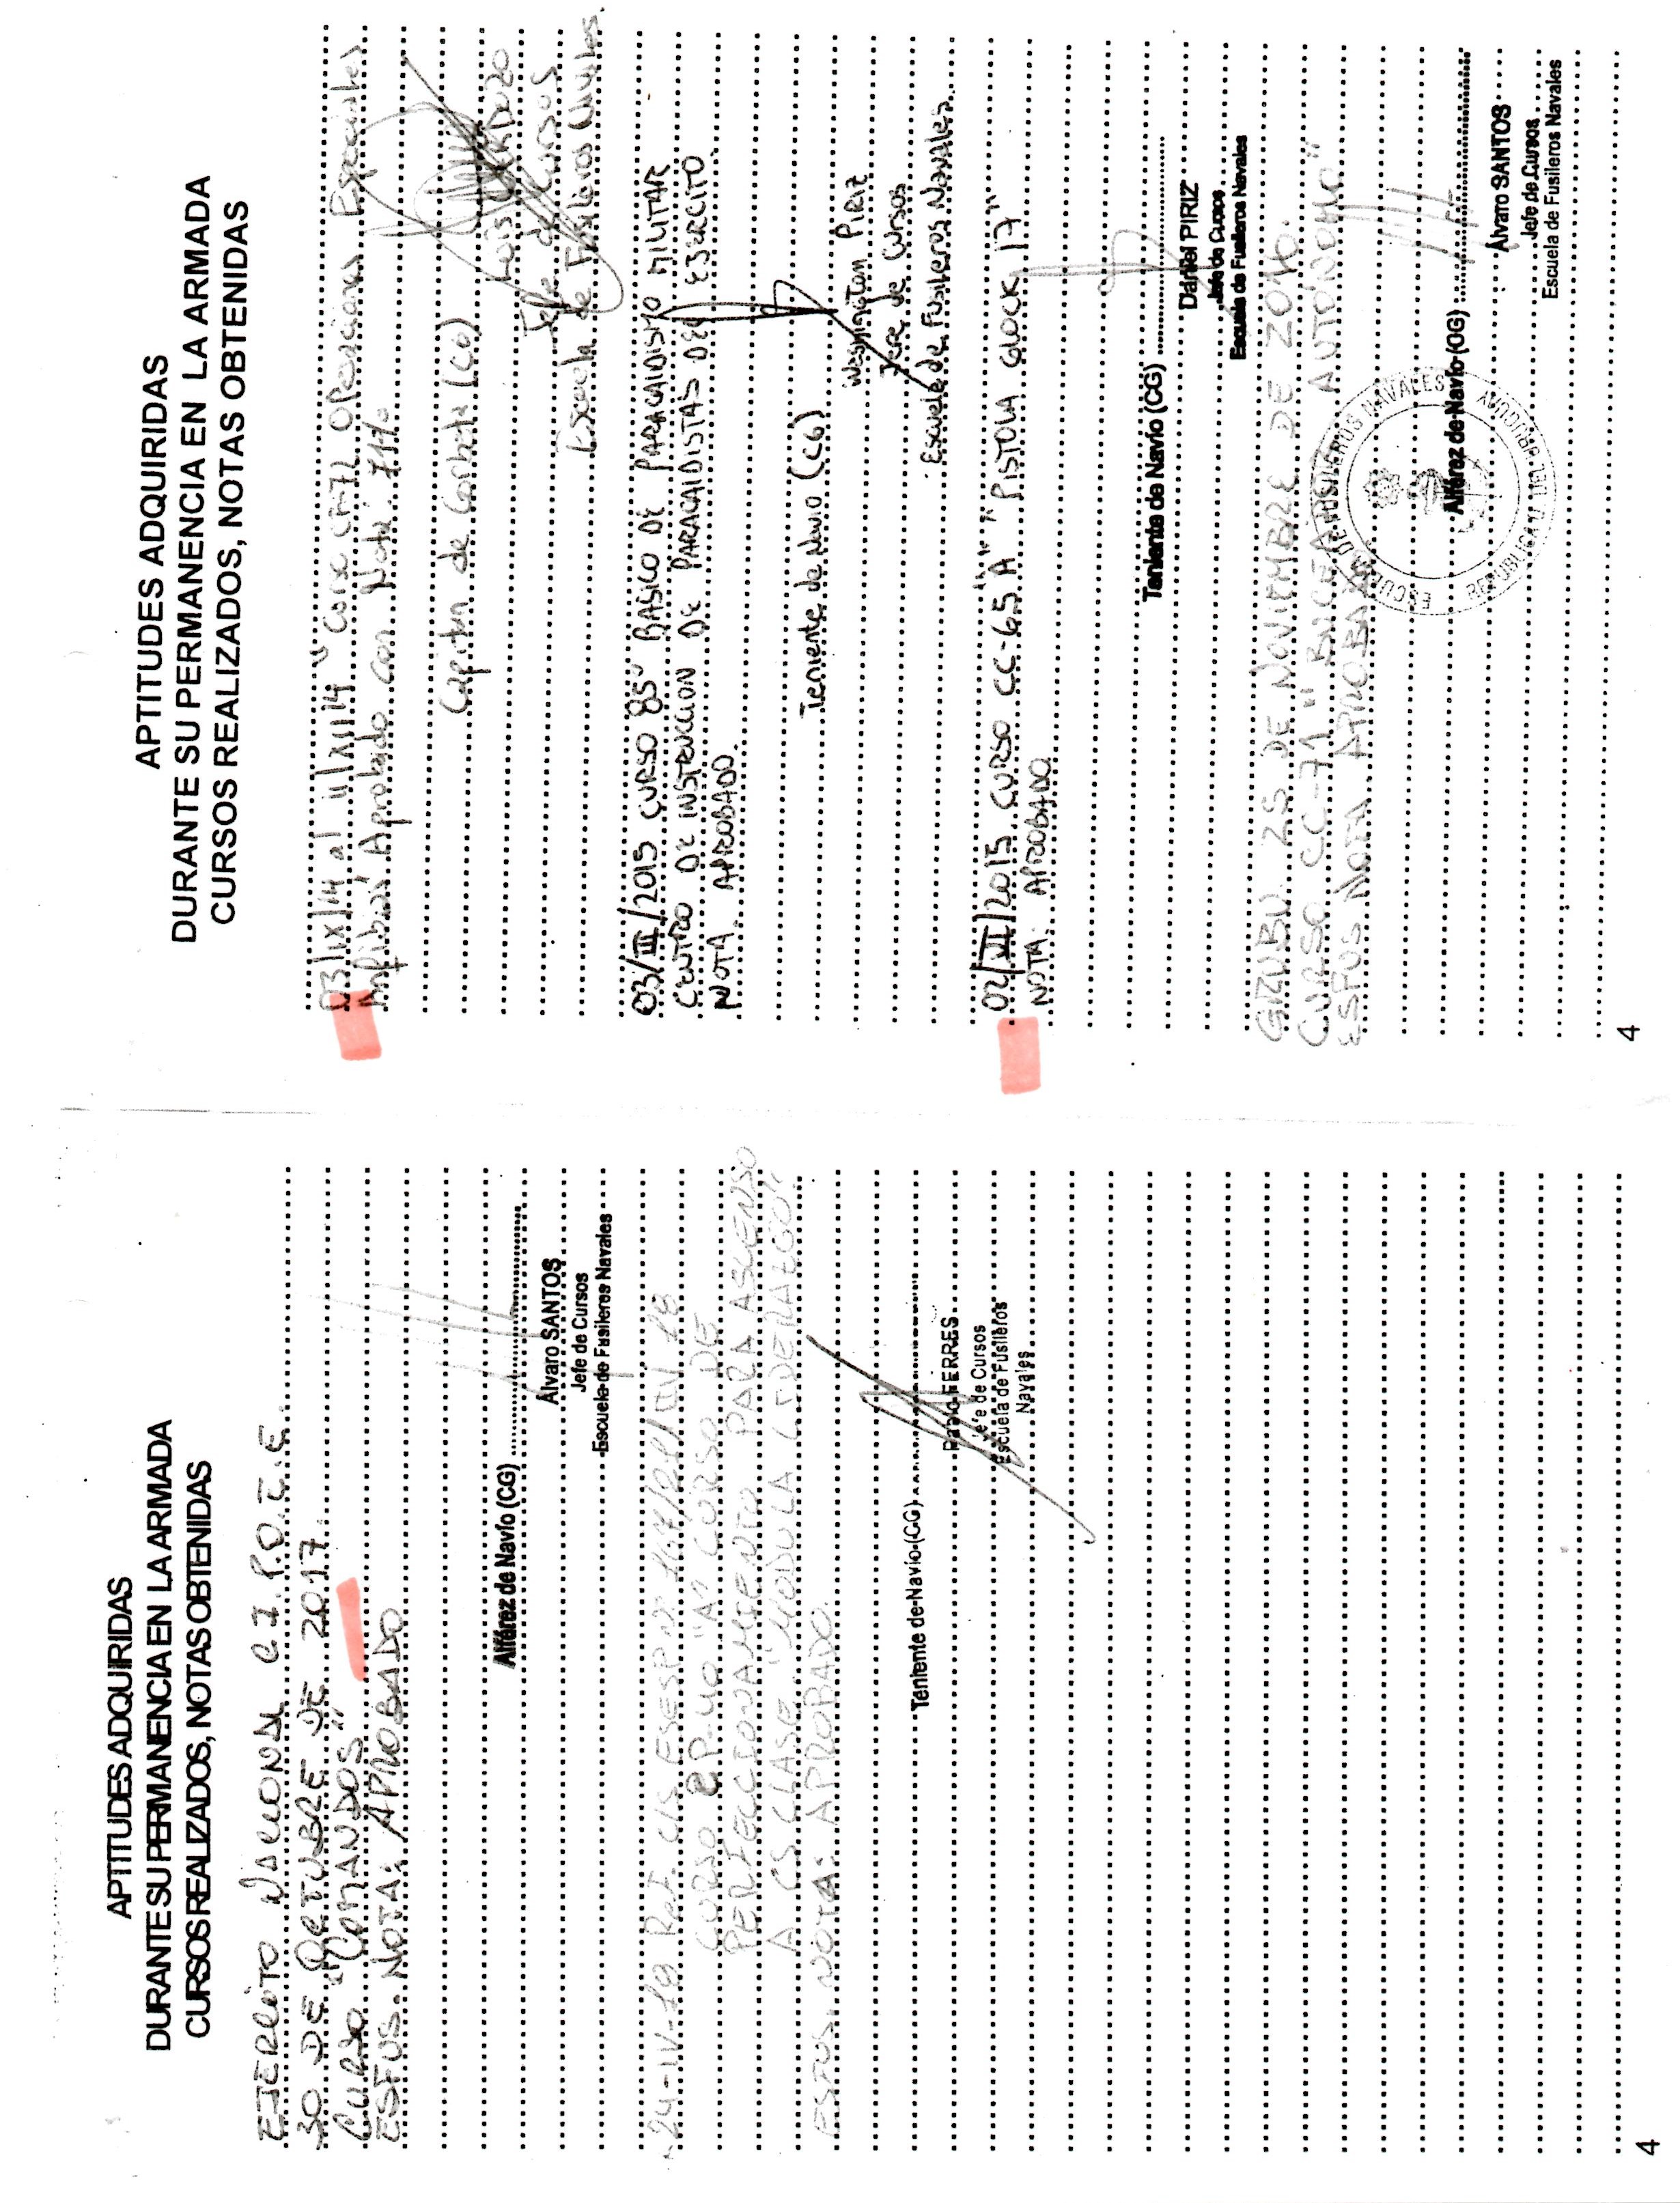 APTITUDES ADQUIRIDAS
DURANTE SU PERMANENCIA EN LA ARMADA
CURSOS REALIZADOS, NOTAS OBTENIDAS
EJERCITO NACIONAL C.I.P.O.E.E.
30 DE OCTUBRE DE 2017.
CURSO "COMANDOS"
ESFUS. NOTA: APROBADO
Alférez de Navío (CG)
Álvaro SANTOS
Jefe de Cursos
Escuela de Fusileros Navales
24-IV-18 Ref. C/S ESESP Nº 167/21/IV/18
CURSO CP-40 "A" CURSO DE
PERFECCIONAMIENTO PARA ASCENSO
A CS CLASE "MODULA LIDERAZGO".
ESFUS. NOTA: APROBADO.
Teniente de Navío (CG)
Pablo FERRES
Jefe de Cursos
Escuela de Fusileros
Navales
4
APTITUDES ADQUIRIDAS
DURANTE SU PERMANENCIA EN LA ARMADA
CURSOS REALIZADOS, NOTAS OBTENIDAS
03/IX/14 al 11/XII/14 "Corso CF-72 Operaciones Especiales
Anfibias" Aprobado con Nota: 71%
Capitan de Corbeta (CG)
Luis CARDOZO
Jefe de Cursos
Escuela de Fusileros Navales.
03/III/2015 CURSO 85º BASICO DE PARACAIDISMO MILITAR
CENTRO DE INSTRUCCION DE PARACAIDISTAS DEL EJERCITO.
NOTA. APROBADO.
Teniente de Navio (CG)
Washington PIRIZ
Jefe de Cursos
Escuela de Fusileros Navales.
02/VI/2015 CURSO CC-65 "A" "PISTOLA GLOCK 17"
NOTA: APROBADO
Teniente de Navío (CG)
Daniel PIRIZ
Jefe de Cursos
Escuela de Fusileros Navales
GRUBU. 25 DE NOVIEMBRE DE 2016.
CURSO CC-71 "BUCEADOR AUTÓNOMO"
ESFUS NOTA APROBADO
ESCUELA DE FUSILEROS NAVALES
REPUBLICA O. DEL URUGUAY
Alférez de Navío (CG)
Álvaro SANTOS
Jefe de Cursos
Escuela de Fusileros Navales
4